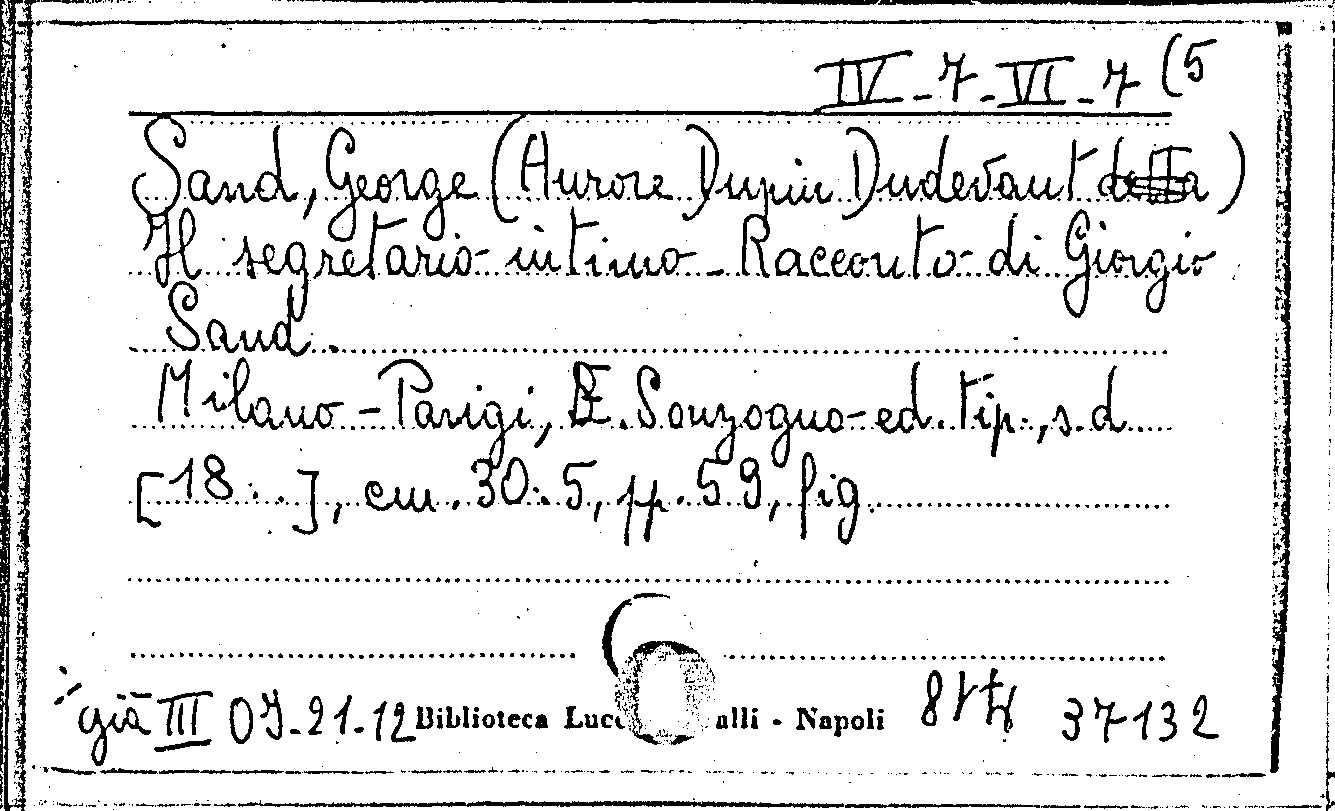 IV-7-VI-7(5
Sand, George (Aurore Dupin Dudevant detta)
Il segretario intimo - Racconto di Giorgio
Sand.
Milano - Parigi, E. Sonzogno ed. tip., s.d
[18..], cm. 30.5, pp. 59, fig.
già III 09-21-12 Biblioteca Luc alli - Napoli 37132